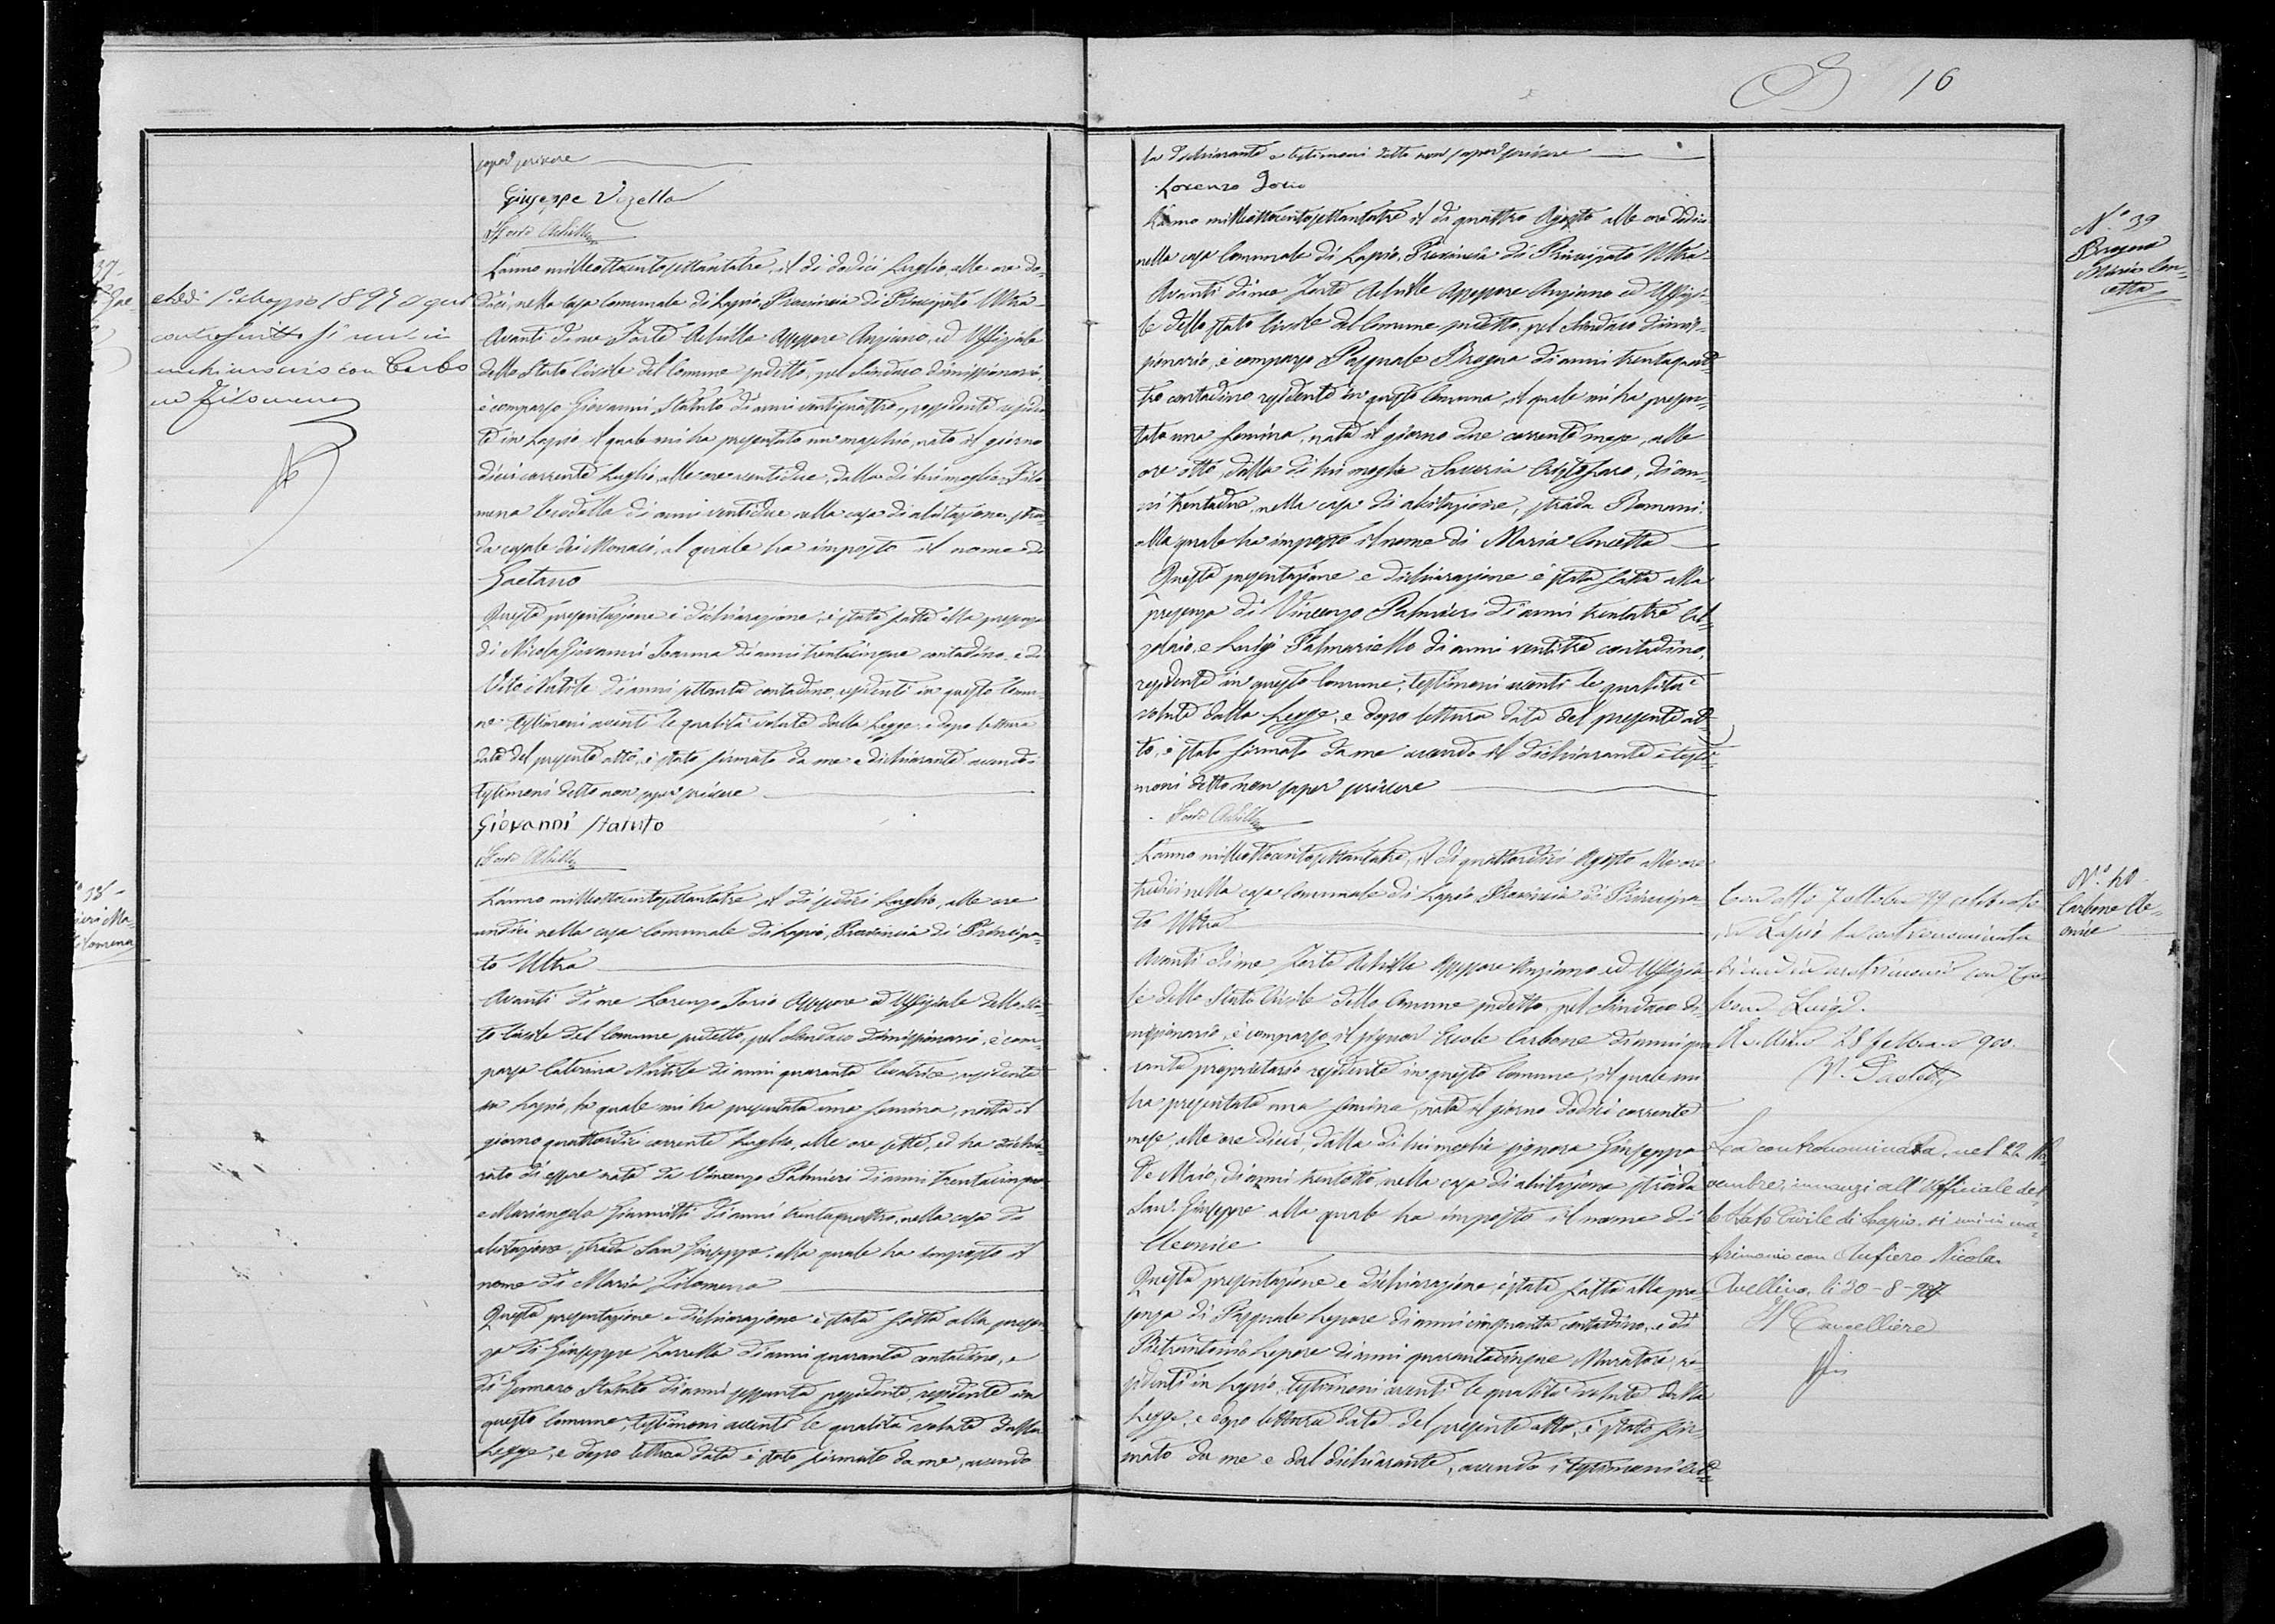 saper scrivere
Giuseppe Vozella
Forte Achille
37
L'anno milleottocentosettantatre, il dì dodici Luglio, alle ore do-
dici, nella Casa Comunale di Lapio, Provincia di Principato Ultra
Avanti di me Forte Achille Assessore Anziano, ed Uffiziale
dello Stato Civile del Comune sudetto, pel Sindaco dimissionario,
è comparso Giovanni Statuto di anni ventiquattro, possidente residen
te in Lapio, il quale mi ha presentato un maschio, nato il giorno
dieci corrente Luglio, alle ore ventidue, dalla di lui moglie Filo
mena di anni ventidue nella casa di abitazione, stra-
da casale dei Monaci, al quale ha imposto il nome di
Gaetano
Questa presentazione e dichiarazione, è stata fatta alla presenza
di Nicola Giovanni Ioanna di anni trentacinque contadino, e di
Vito Natale di anni settanta contadino, residenti in questo Comu-
ne testimoni aventi le qualità volute dalla Legge, e dopo lettura
data del presente atto, è stato firmato da me e dichiarante avendo i
testimoni detto non saper scrivere
Giovanni Statuto
Forte Achille
1º Maggio 1897 a qui
controscritto si unì in
matrimonio con Carbo
ne Filomena
38
Filomena
L'anno milleottocentosettantatre il dì sedici Luglio, alle ore
undici nella casa Comunale di Lapio, Provincia di Principa-
to Ultra
Avanti di me Lorenzo Iorio Assessore ed Uffiziale dello Sta-
to Civile del Comune sudetto, pel Sindaco dimissionario, è com-
parsa Caterina Natale di anni quaranta levatrice, residente
in Lapio, la quale mi ha presentata una femina, nata il
giorno quattordici corrente Luglio, alle ore sette, ed ha dichia-
rato di essere nata da Vincenzo Palmieri di anni trentacinque
e Mariangela Giannitti di anni trentaquattro, nella casa di
abitazione, strada San Giuseppe, alla quale ha imposto il
nome di Maria Filomena
Questa presentazione e dichiarazione è stata fatta alla presen
za di Giuseppe Zarrella di anni quaranta contadino, e
di Gennaro Statuto di anni sessanta possidente, residente in
questo Comune, testimoni aventi le qualità volute dalla
Legge, e dopo lettura data è stato firmato da me, avendo
16
la dichiarante e testimoni detto non saper scrivere
Lorenzo Iorio
Nº 39
Brogna
Maria Con-
cetta
L'anno milleottocentosettantatre il dì quattro Agosto alle ore dodici
nella casa Comunale di Lapio, Provincia di Principato Ultra
Avanti di me Forte Achille Assessore Anziano ed Uffizia-
le dello Stato Civile del Comune sudetto, pel Sindaco dimis-
sionario, è comparso Pasquale Brogna di anni trentaquat-
tro contadino residente in questo Comune, il quale mi ha presen-
tato una femina, nata il giorno due corrente mese, alle
ore otto, dalla di lui moglie Saveria Cristofaro, di an-
ni trentadue, nella casa di abitazione, strada Romani,
alla quale ha imposto il nome di Maria Concetta
Questa presentazione e dichiarazione è stata fatta alla
presenza di Vincenzo Palmieri di anni trentatre Cal-
zolaio, e Luigi Palmariello di anni ventitre contadino,
residente in questo Comune, testimoni aventi le qualità
volute dalla Legge, e dopo lettura data del presente at-
to, è stato firmato da me avendo il dichiarante e testi-
moni detto non saper scrivere
Forte Achille
Nº 40
Carbone Cle-
onice
L'anno milleottocentosettantatre, il dì quattordici Agosto alle ore
tredici nella casa Comunale di Lapio Provincia di Principa-
to Ultra
Avanti di me Forte Achille Assessore Anziano ed Uffizia-
le dello Stato Civile dello Comune sudetto, pel Sindaco di-
missionario, è comparso il signor Ercole Carbone di anni qua
ranta proprietario residente in questo Comune, il quale mi
ha presentata una femina, nata il giorno dodici corrente
mese, alle ore dieci, dalla di lui moglie signora Giuseppa
De Maio, di anni trentotto nella casa di abitazione strada
San Giuseppe alla quale ha imposto il nome di
Cleonice
Questa presentazione e dichiarazione, è stata fatta alla pre-
senza di Pasquale Lepore di anni cinquanta contadino, e di
Pietrantonio Lepore di anni quarantacinque Muratore, re-
sidenti in Lapio, testimoni aventi le qualità volute dalla
Legge, e dopo lettura data del presente atto, è stato fir-
mato da me e dal dichiarante, avendo i testimoni det-
Con atto 7 ottobre 99 celebrato
in Lapio la controsegnata
si unì in matrimonio con Car
bone Luigi.
Avellino 28 febbraio 900.
La contronominata, nel 22 No-
vembre, innanzi all'Officiale del
lo Stato Civile di Lapio, si unì in ma-
trimonio con Aufiero Nicola.
Avellino, li 30-8-
Il Cancelliere